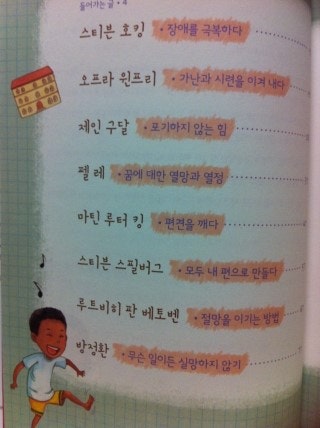 들어가는 글 • 4
스티븐 호킹 • 장애를 극복하다
오프라 윈프리 • 가난과 시련을 이겨 내다
제인 구달 • 포기하지 않는 힘
펠레 • 꿈에 대한 열망과 열정
마틴 루터 킹 • 편견을 깨다
스티븐 스필버그 • 모두 내 편으로 만들다
루트비히 판 베토벤 • 절망을 이기는 방법
방정환 • 무슨 일이든 실망하지 않기